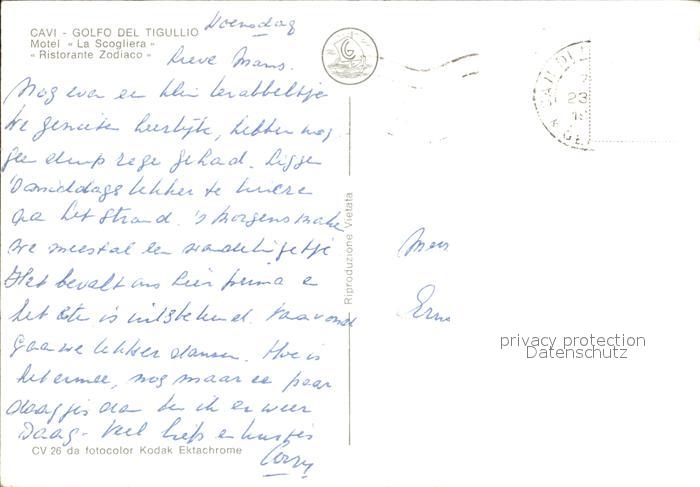 Woensdag
CAVI - GOLFO DEL TIGULLIO
Motel « La Scogliera »
« Ristorante Zodiaco »
Lieve Mams.
Nog even een klein krabbeltje
We genieten heerlijk, hebben nog
geen drup rege gehad. Liggen
's middags lekker te luiere
aa het strand. 's Morgens make
we meestal een wandelingetje
Het bevalt ons hier prima e
het ete is uitstekend. Vanavond
gaan we lekker dansen. Hoe is
het ermee, nog maar ee paar
daagjes dan ben ik er weer
Daag - Veel liefs en kusjes
Corry
CV 26 da fotocolor Kodak Ektachrome
Riproduzione Vietata
23
privacy protection
Datenschutz